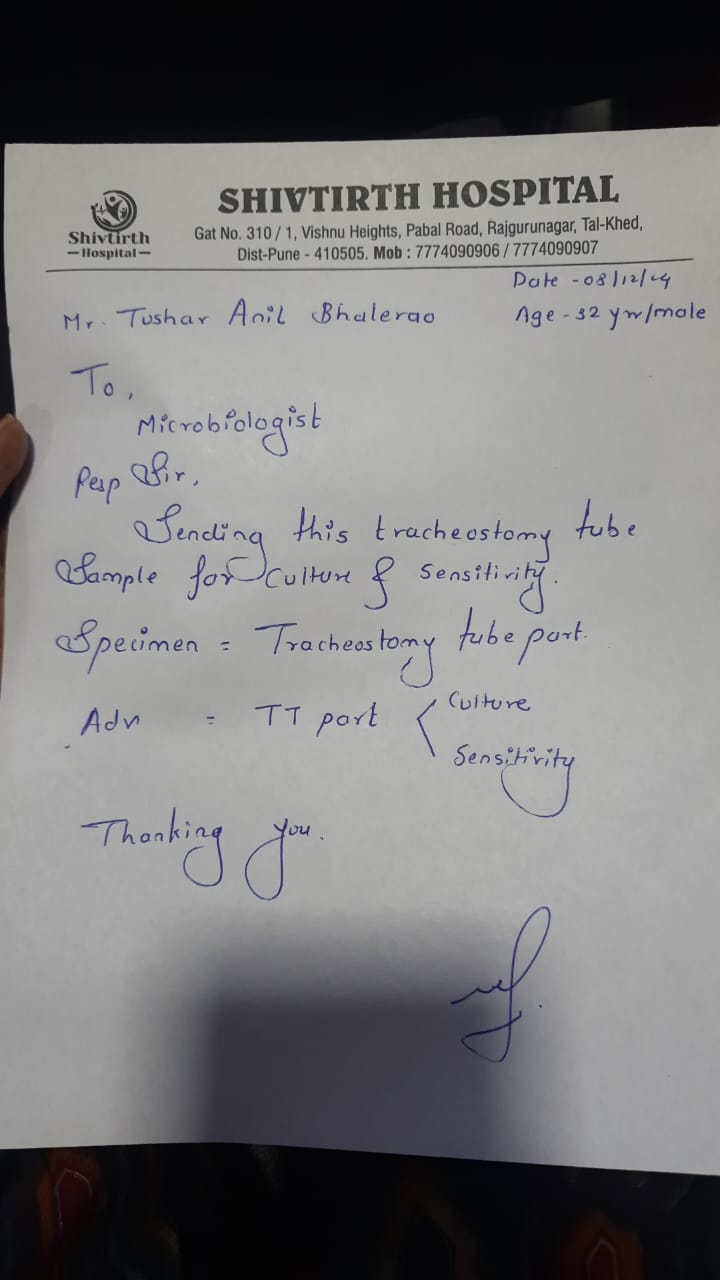 SHIVTIRTH HOSPITAL
Shivtirth
Hospital
Gat No. 310 / 1, Vishnu Heights, Pabal Road, Rajgurunagar, Tal-Khed,
Dist-Pune - 410505. Mob : 7774090906 / 7774090907
Date - 08/12/24
Mr. Tushar Anil Bhalerao
Age - 32 yr/male
To,
Microbiologist
Resp Sir,
Sending this tracheostomy tube
Sample for Culture & Sensitivity.
Specimen = Tracheostomy tube part.
Adv = TT part < Culture
Sensitivity
Thanking you.